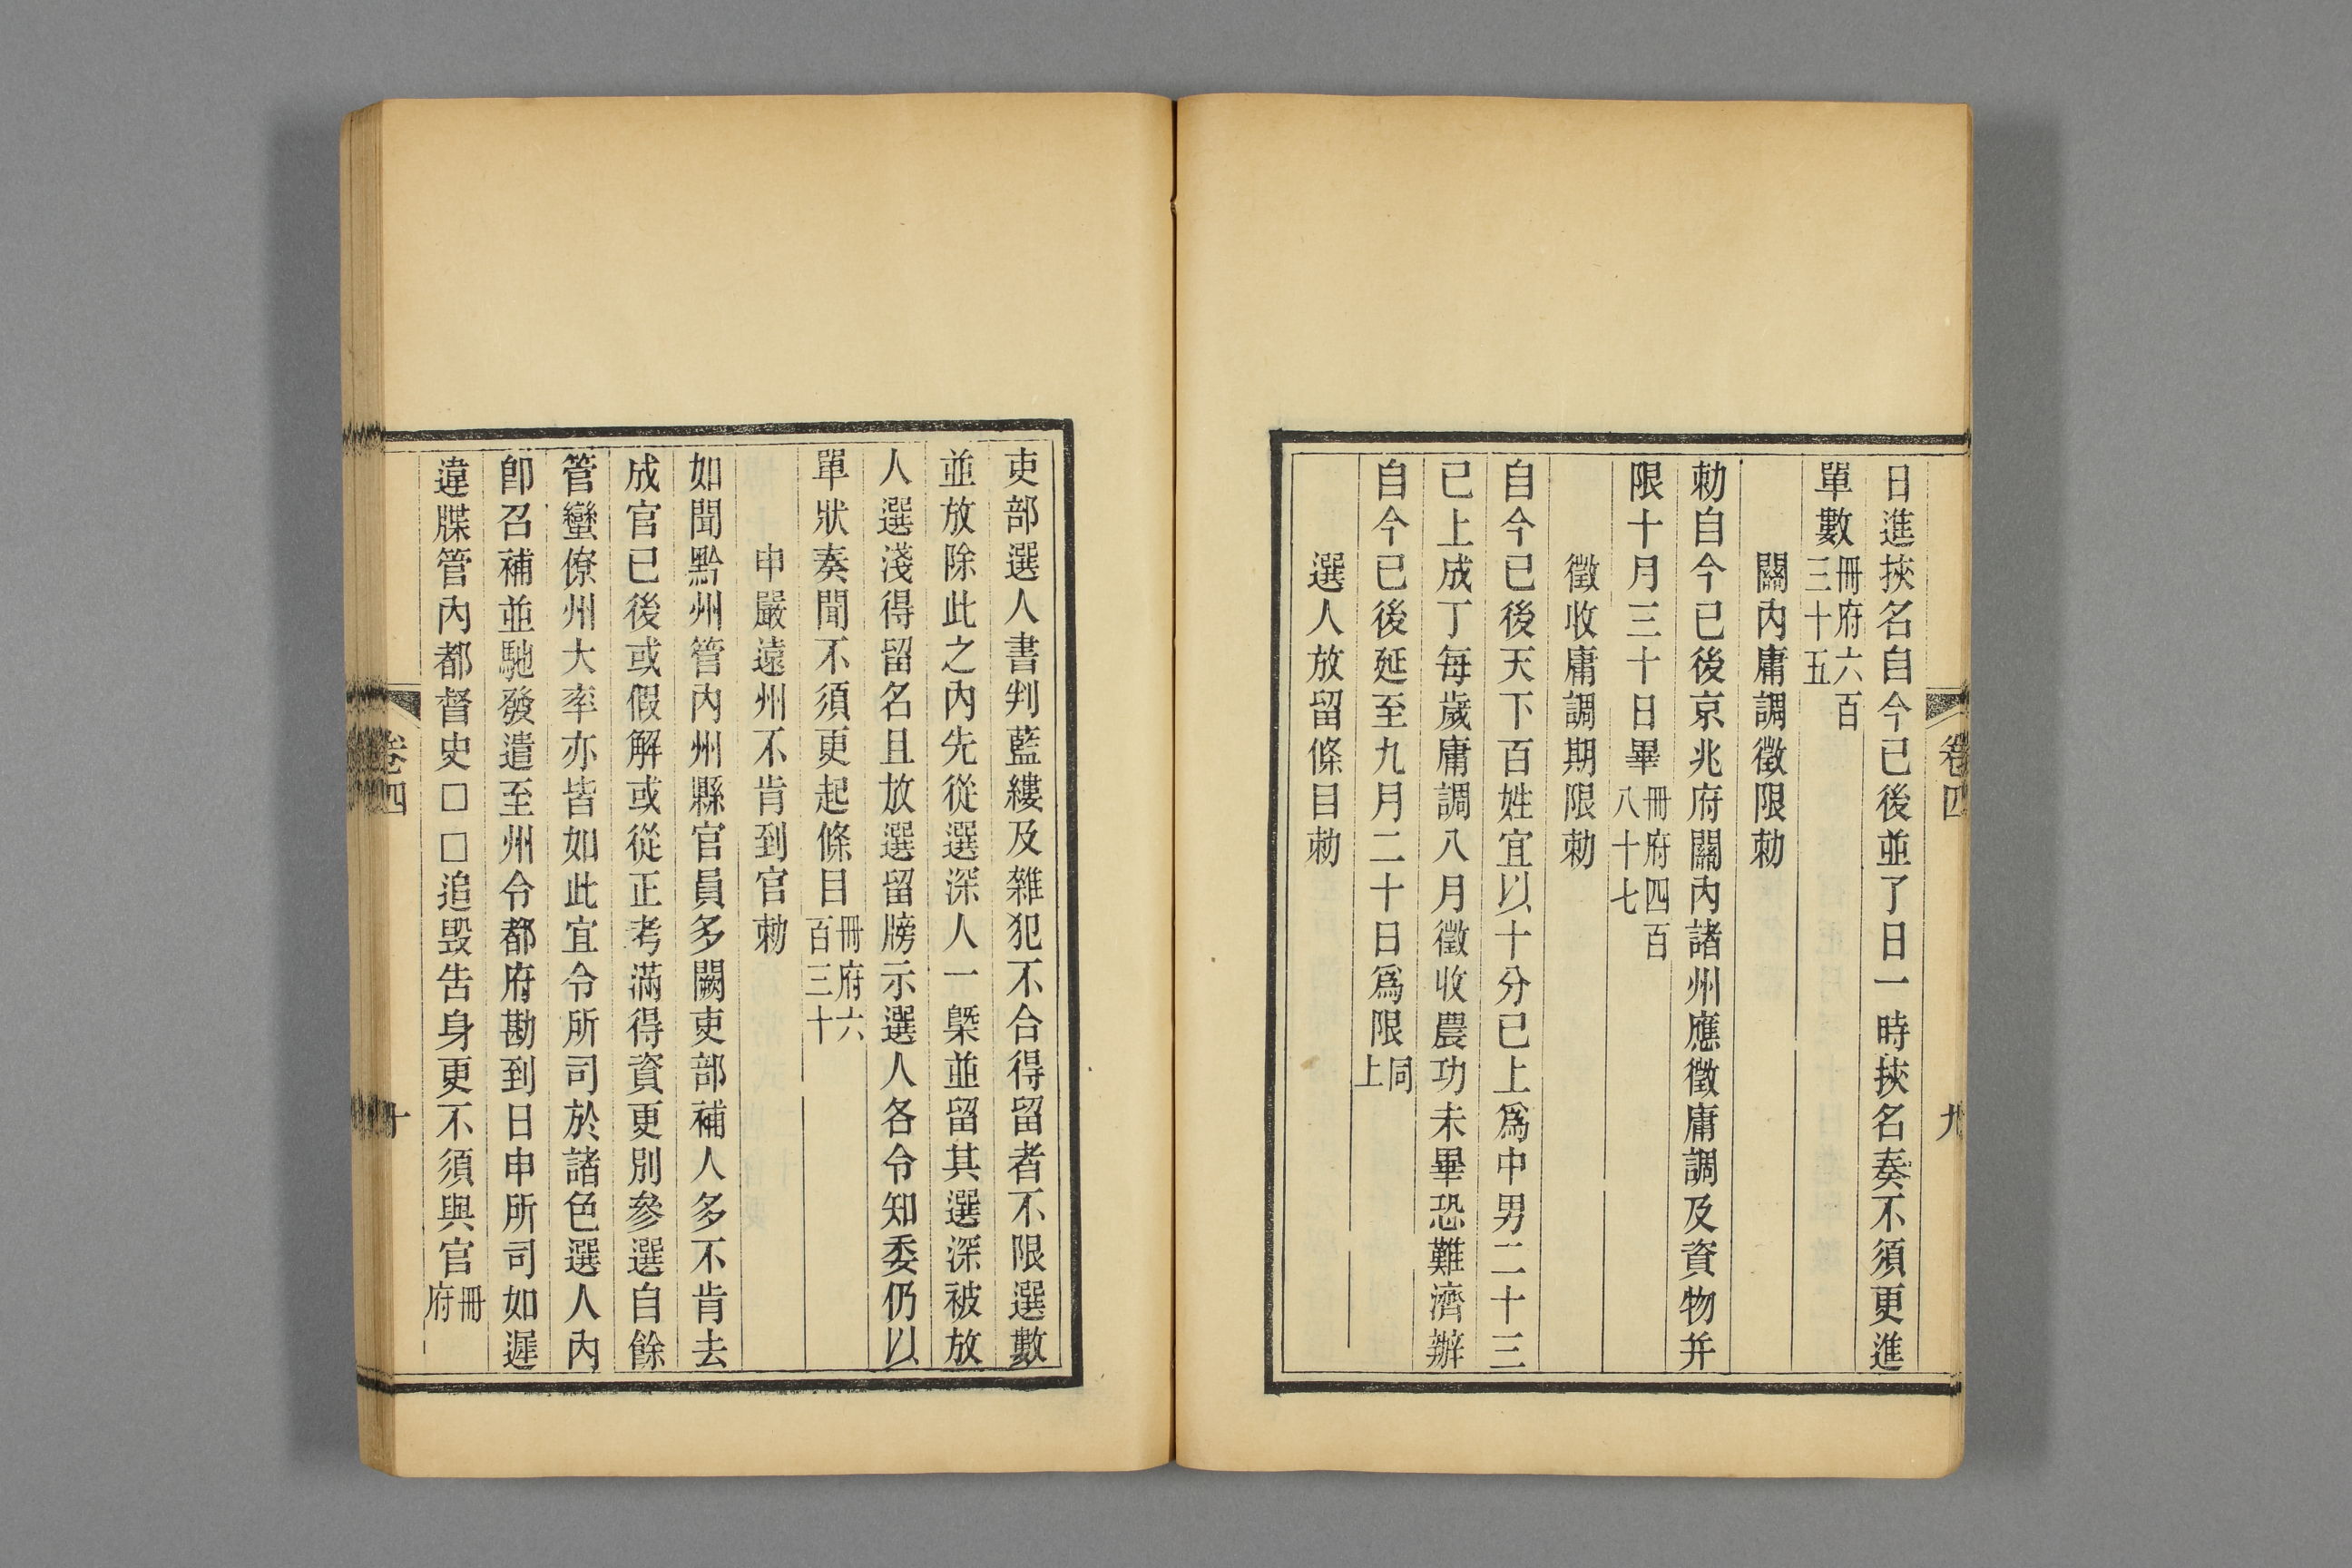 卷四
九
日進挾名自今已後並了日一時挾名奏不須更進
單數冊府六百三十五
關內庸調徵限勅
勅自今已後京兆府關內諸州應徵庸調及資物并
限十月三十日畢冊府四百八十七
徵收庸調期限勅
自今已後天下百姓宜以十分已上爲中男二十三
已上成丁每歲庸調八月徵收農功未畢恐難濟辦
自今已後延至九月二十日爲限同上
選人放留條目勅
吏部選人書判藍縷及雜犯不合得留者不限選數
並放除此之內先從選深人一槩並留其選深被放
人選淺得留名且放選留牓示選人各令知委仍以
單狀奏聞不須更起條目冊府六百三十
申嚴遠州不肯到官勅
如聞黔州管內州縣官員多闕吏部補人多不肯去
成官已後或假解或從正考滿得資更別參選自餘
管蠻僚州大率亦皆如此宜令所司於諸色選人內
卽召補並馳發遣至州令都府勘到日申所司如遲
違牒管內都督史□□追毀告身更不須與官冊府
卷四
十